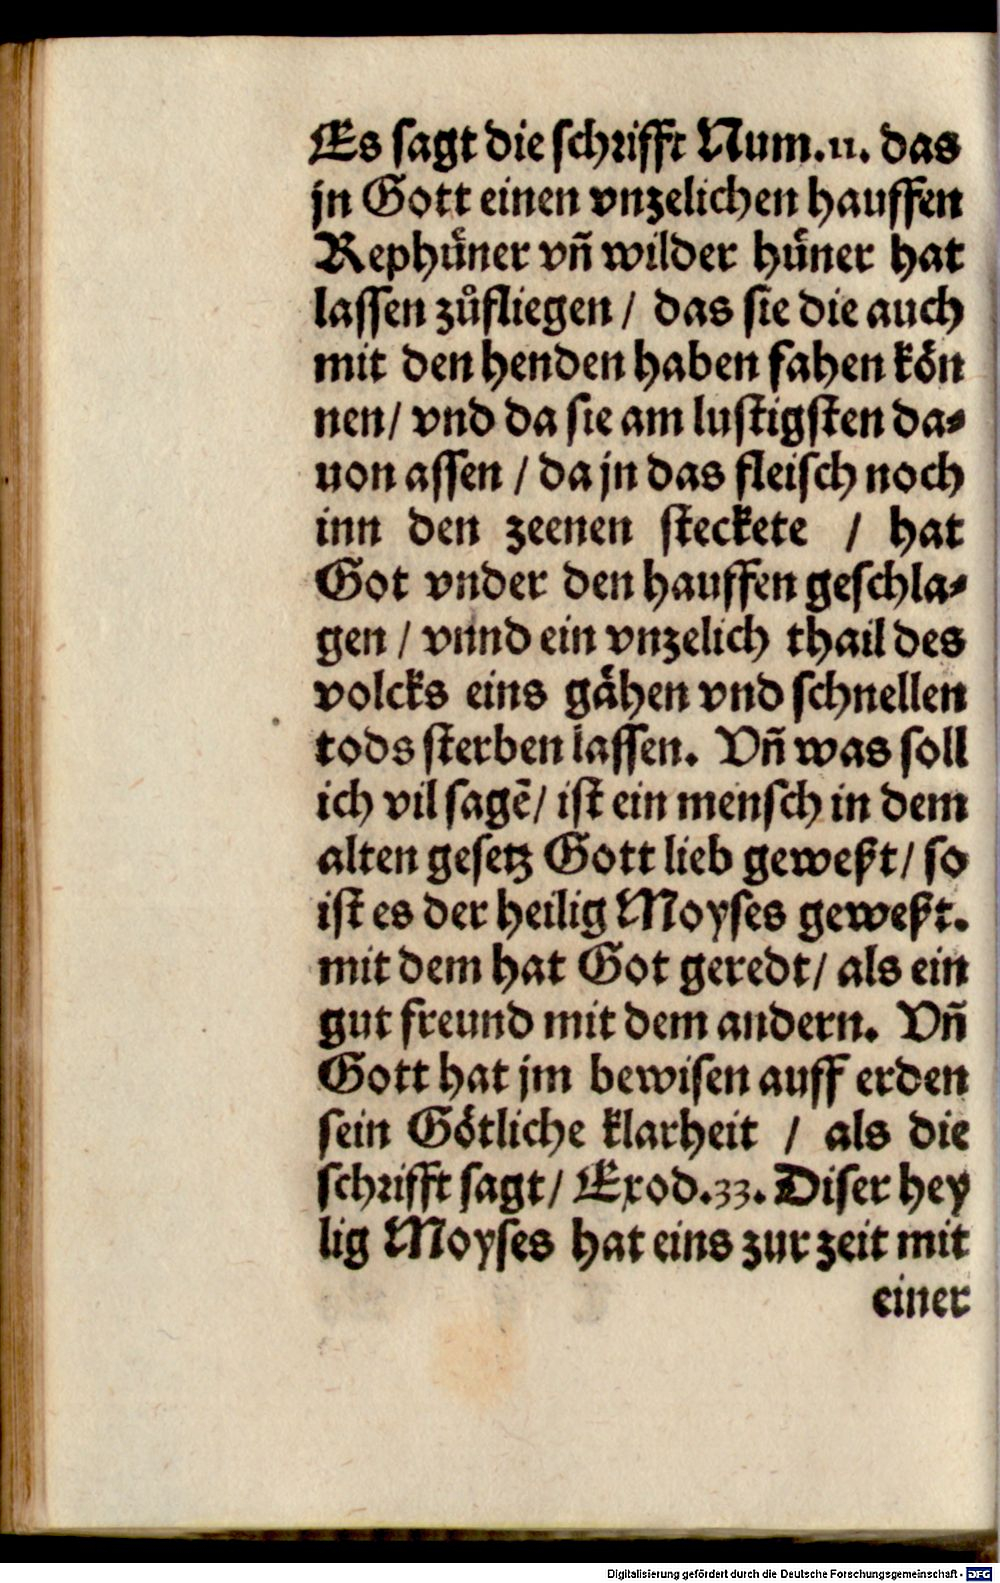 Es sagt die schrifft Num.11. das
jn Gott einen vnzelichen hauffen
Rephuͤner vn̄ wilder huͤner hat
lassen zuͦfliegen / das sie die auch
mit den henden haben fahen koͤn
nen / vnd da sie am lustigsten da⸗
uon assen / da jn das fleisch noch
inn den zeenen steckete / hat
Got vnder den hauffen geschla⸗
gen / vnnd ein vnzelich thail des
volcks eins gaͤhen vnd schnellen
tods sterben lassen. Vn̄ was soll
ich vil sagē / ist ein mensch in dem
alten gesetz Gott lieb geweßt / so
ist es der heilig Moyses geweßt.
mit dem hat Got geredt / als ein
gut freund mit dem andern. Vn̄
Gott hat jm bewisen auff erden
sein Goͤtliche klarheit / als die
schrifft sagt / Exod.33. Diser hey
lig Moyses hat eins zur zeit mit
einer
Digitalisierung gefördert durch die Deutsche Forschungsgemeinschaft - DFG